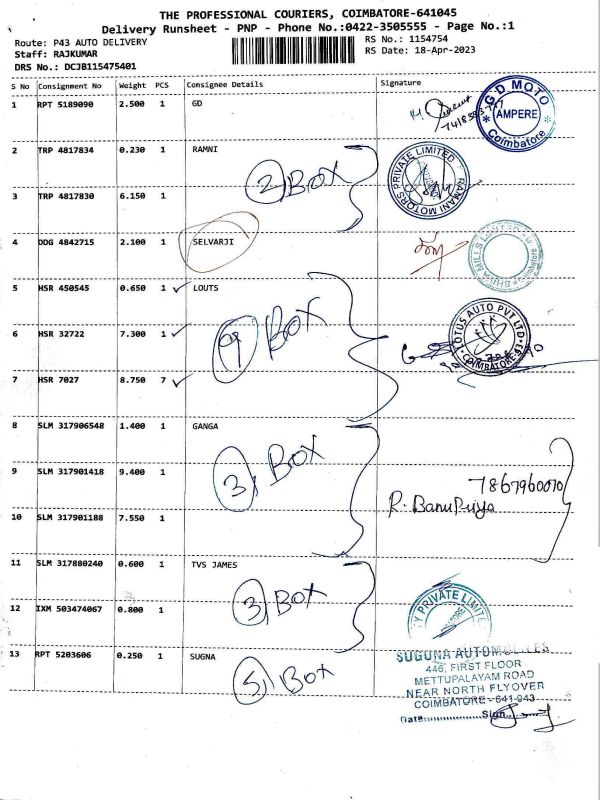 THE PROFESSIONAL COURIERS, COIMBATORE-641045
Delivery Runsheet - PNP - Phone No.:0422-3505555 - Page No.:1
Route: P43 AUTO DELIVERY
Staff: RAJKUMAR
DRS No.: DCJB115475401
RS No.: 1154754
RS Date: 18-Apr-2023
S No Consignment No Weight PCS Consignee Details Signature
1 RPT 5189090 2.500 1 GD
G D MOTO
AMPERE
Coimbatore
2 TRP 4817834 0.230 1 RAMNI
2 Box
RAMANI MOTORS PRIVATE LIMITED
3 TRP 4817830 6.150 1
4 ODG 4842715 2.100 1 SELVARJI
MILLS LIMITED
5 HSR 450545 0.650 1 LOUTS
9 Box
LOTUS AUTO PVT LTD
COIMBATORE-43
6 HSR 32722 7.300 1
7 HSR 7027 8.750 7
8 SLM 317906548 1.400 1 GANGA
3, Box
9 SLM 317901418 9.400 1
7867960070
R. BanuPriya
10 SLM 317901188 7.550 1
11 SLM 317880240 0.600 1 TVS JAMES
3, Box
12 IXM 503474067 0.800 1
PRIVATE LIMITE
13 RPT 5203606 0.250 1 SUGNA
5, Box
SUGUNA AUTOMOBILES
446, FIRST FLOOR
METTUPALAYAM ROAD
NEAR NORTH FLYOVER
COIMBATORE - 641 043
Date:..............Sign